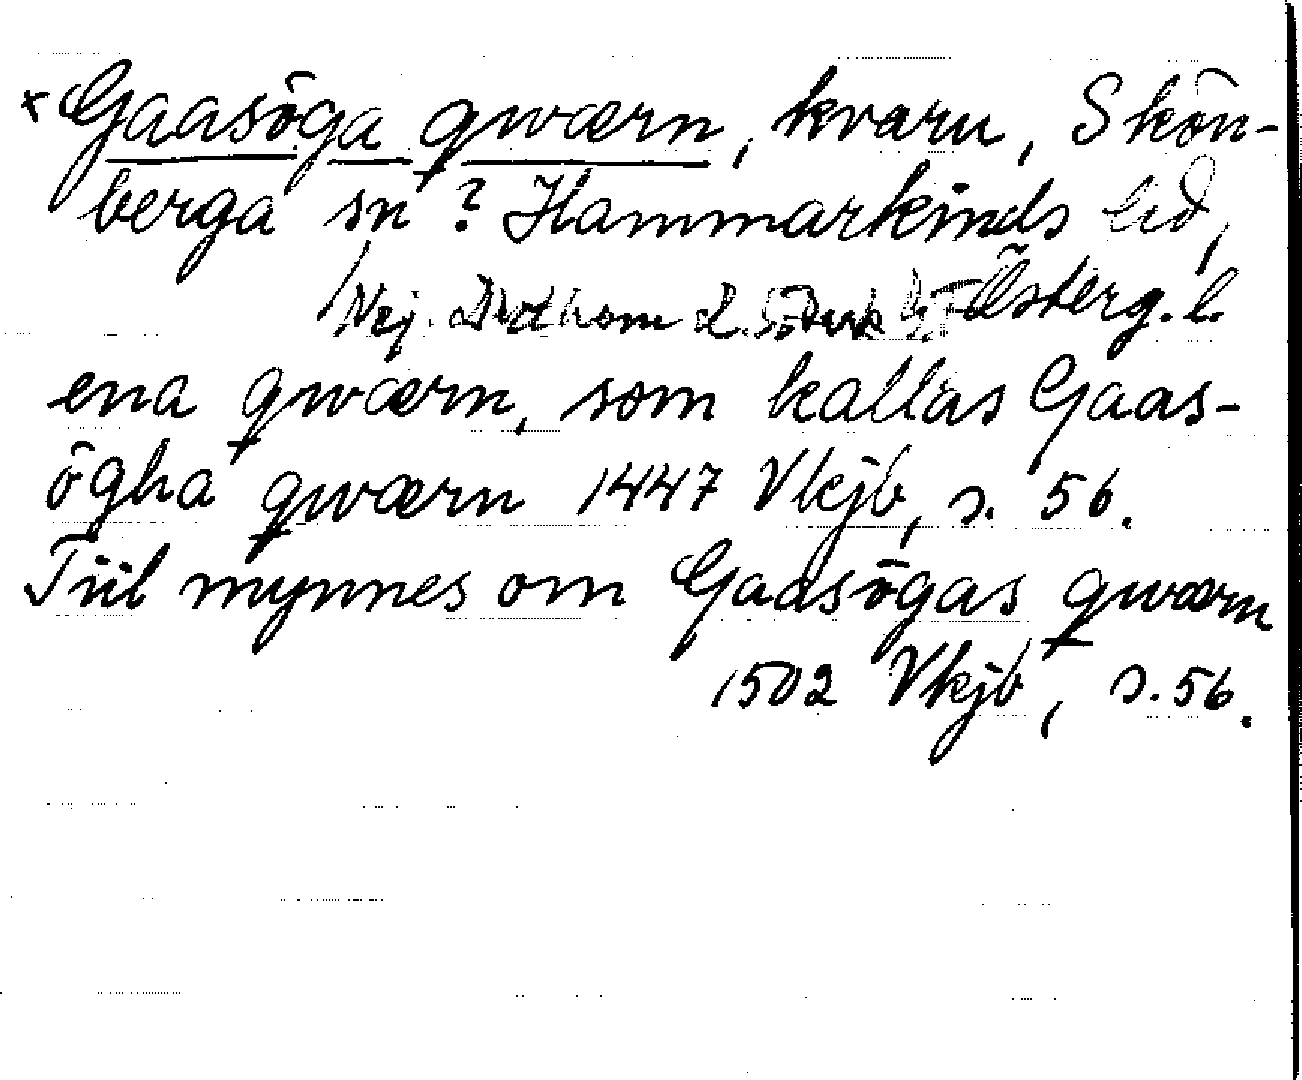 * Gaasöga qwærn, kvarn, Skön-
berga sn? Hammarkinds hd,
Nej. Drothem l. Söderk Österg. l.
ena qwærn, som kallas Gaas-
ögha qwærn 1447 Vkjb, s. 56.
Tiil mynnes om Gaasögas qwærn
1502 Vkjb, s. 56.